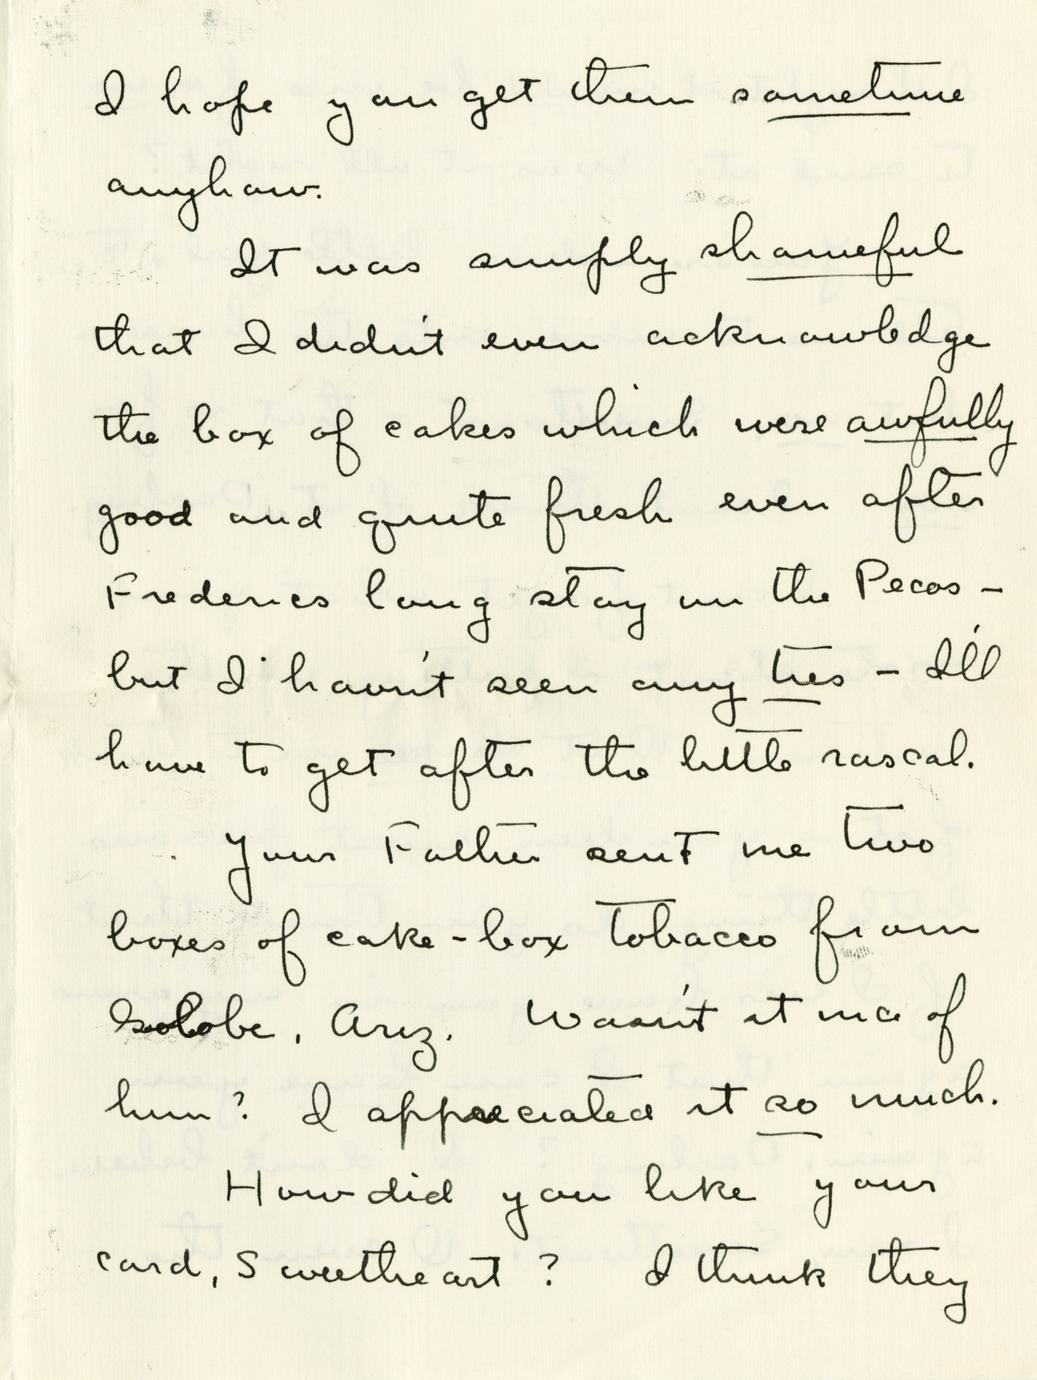 I hope you get them sometime
anyhow.
It was simply shameful
that I didn't even acknowledge
the box of cakes which were awfully
good and quite fresh even after
Frederics long stay on the Pecos -
but I havn't seen any ties - I'll
have to get after the little rascal.
Your Father sent me two
boxes of cake-box tobacco from
Globe, Ariz. Wasn't it nice of
him? I appreciated it so much.
How did you like your
card, Sweetheart? I think they